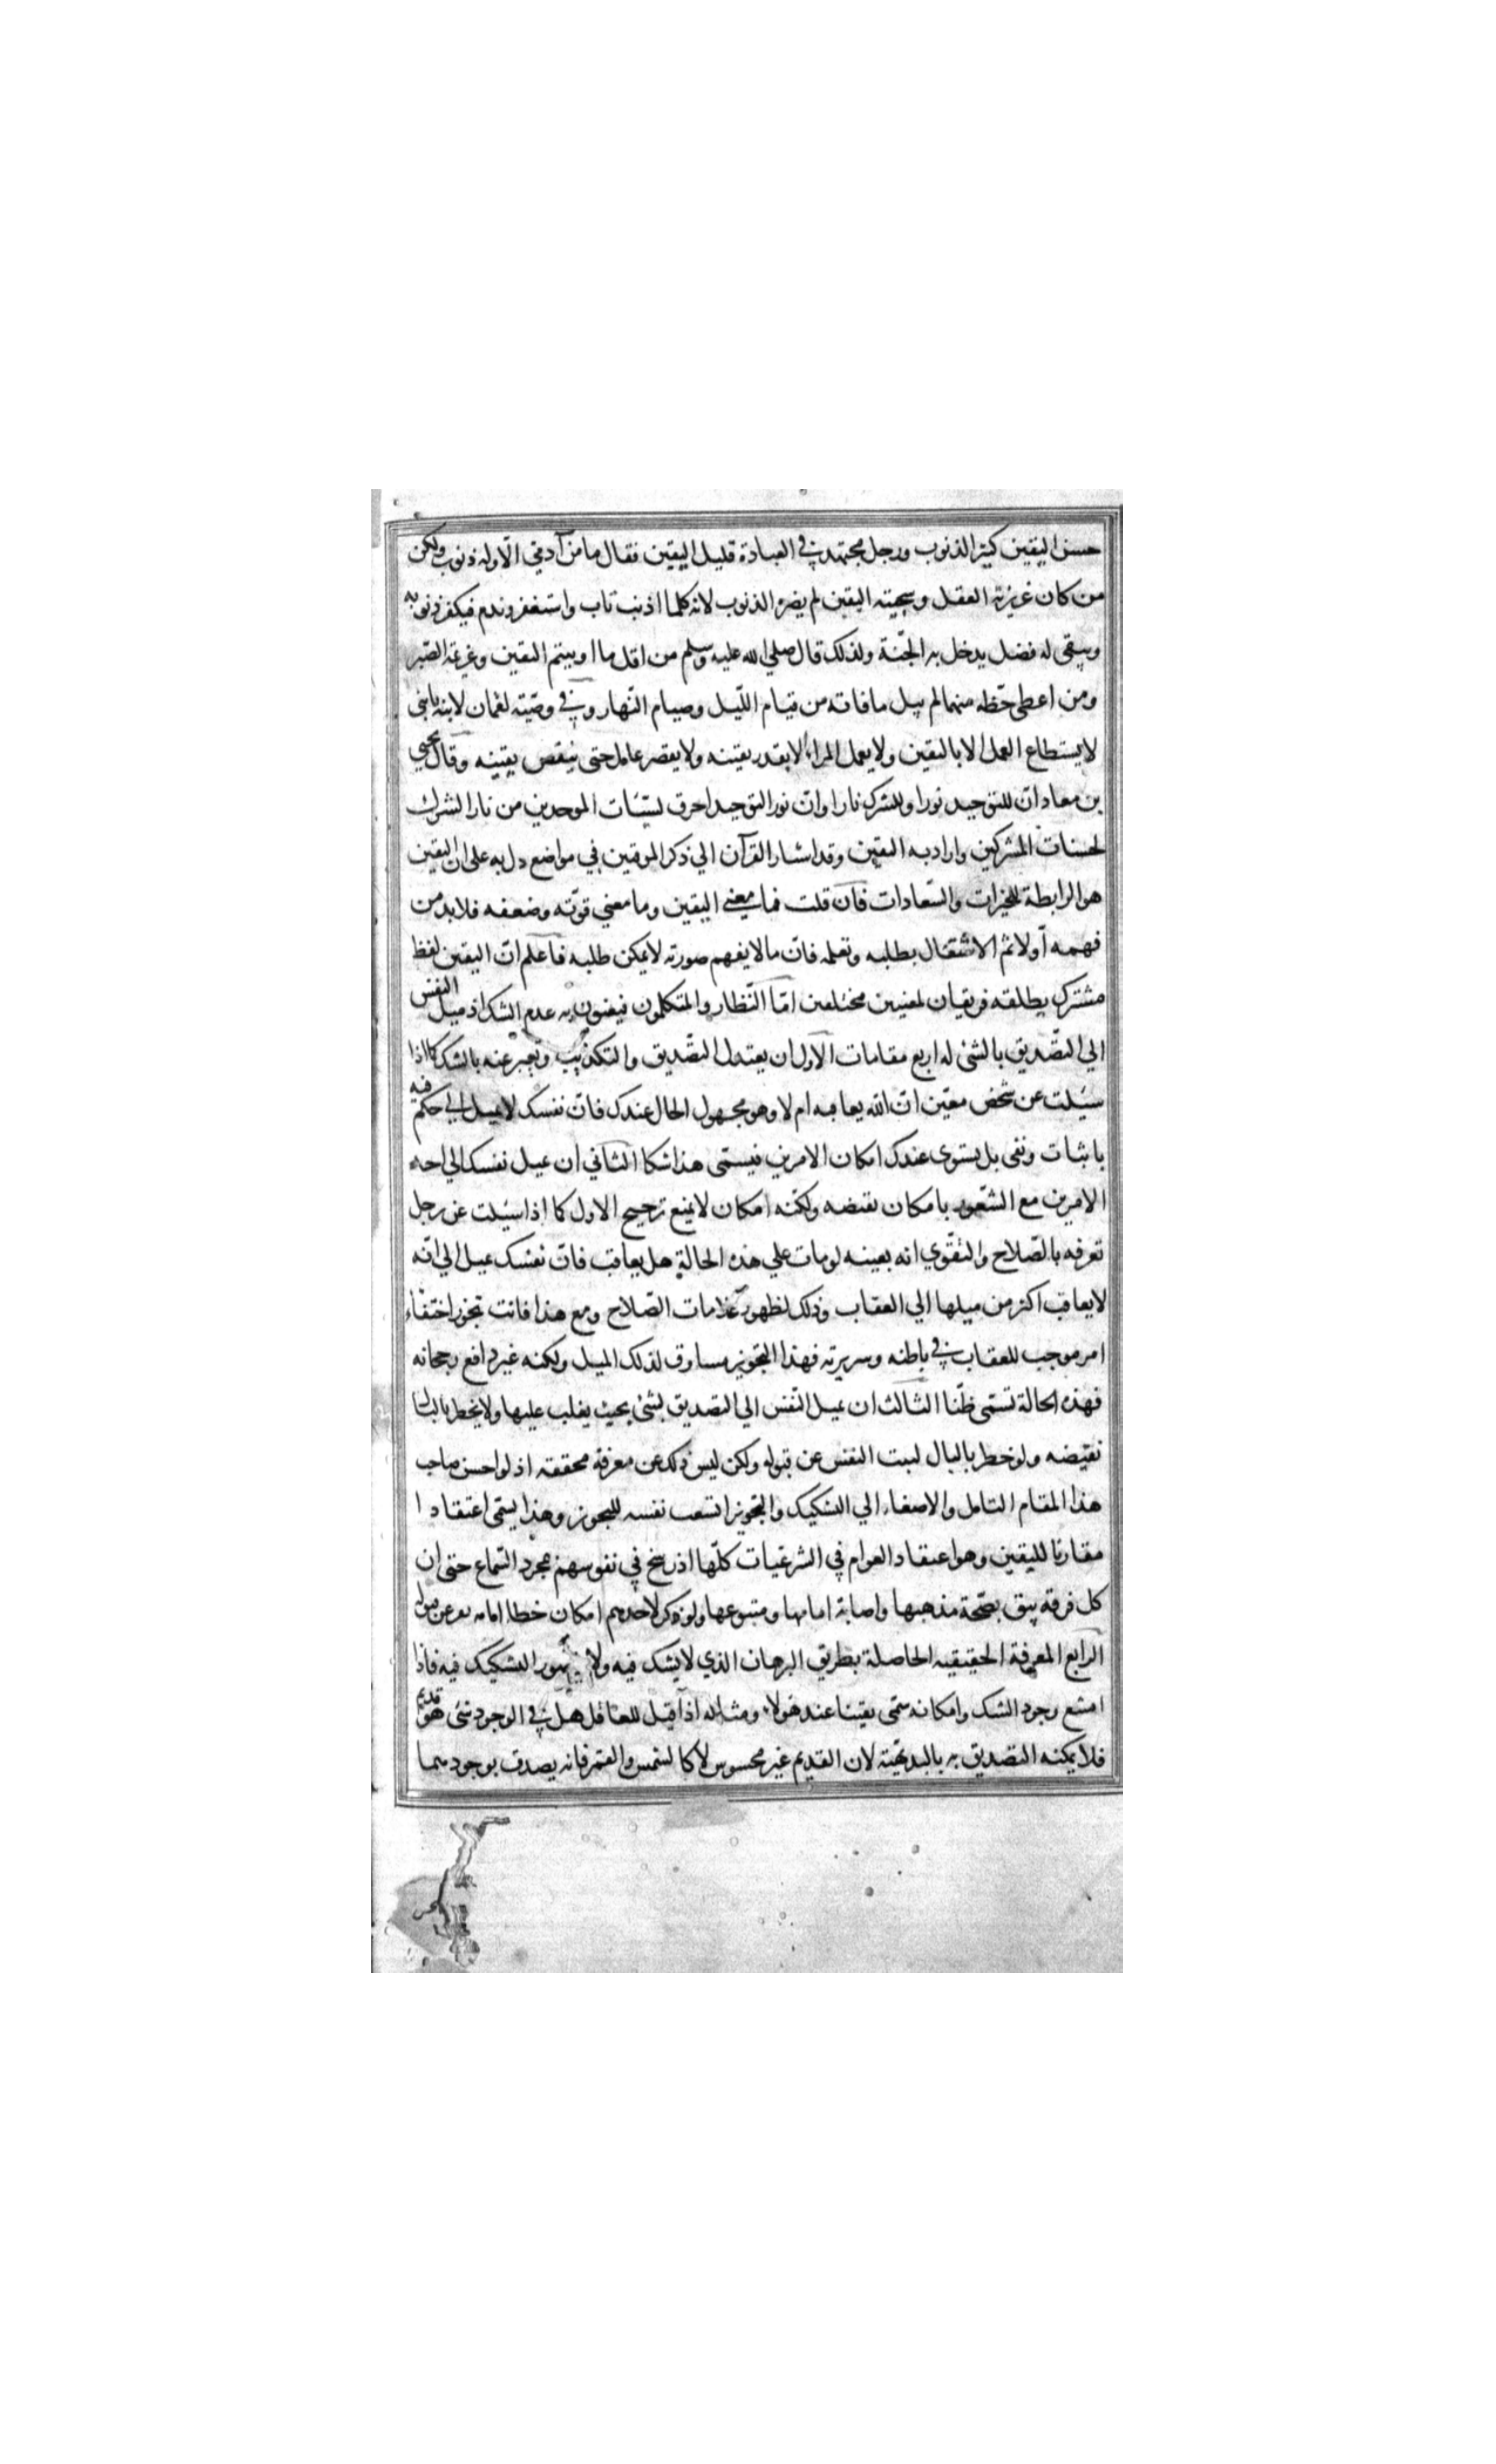 حسن اليقين كثير الذنوب ورجل مجتهد في العبادة قليل اليقين فقال ما من آدمي الّا وله ذنوب ولكن
من كان غريزته العقل وسجيته اليقين لم يضره الذنوب لانه كلما اذنب تاب واستغفر وندم فيكفر ذنوبه
ويبقى له فضل يدخل به الجنّة ولذلك قال صلي الله عليه وسلم من اقل ما اوتيتم اليقين وعزيمة الصّبر
ومن اعطى حظّه منهما لم يبل ما فاته من قيام اللّيل وصيام النّهار وفي وصيّته لقمان لابنه يا بني
لا يستطاع العمل الا باليقين ولا يعمل المرء الا بقدر يقينه ولا يقصر عامل حتى ينقص يقينه وقال يحيي
بن معاد انّ للتوحيد نورا وللشرك نارا وانّ نور التوحيد احرق لسيّئات الموحدين من نار الشرك
لحسنات المشركين واراد به اليقين وقد اشار القرآن الي ذكر الموقنين في مواضع دل به على ان اليقين
هو الرابطة للخيرات والسّعادات فان قلت فما معني اليقين وما معني قوّته وضعفه فلا بد من
فهمه اولا ثم الاشتغال بطلبه وتعلمه فانّ ما لا يفهم صورته لا يمكن طلبه فاعلم انّ اليقين لفظ
مشترك يطلقه فريقان لمعنيين مختلفين امّا النّظار والمتكلمون فيعنون به عدم الشك اذ ميل النفس
الي التصّديق بالشئ له اربع مقامات الاول ان يعتدل التصّديق والتكذيب ويعبر عنه بالشك كما اذا
سئلت عن شخص معيّن انّ الله يعاقبه ام لا وهو مجهول الحال عندك فانّ نفسك لا تميل الي حكم فيه
باثبات ونفى بل يستوى عندك امكان الامرين فيسمّى هذا شكا الثاني ان تميل نفسك الي احد
الامرين مع الشّعور بامكان نقيضه ولكنّه امكان لا يمنع ترجيح الاول كما اذا سئلت عن رجل
تعرفه بالصّلاح والتّقوي انه بعينه لو مات علي هذه الحالة هل يعاقب فانّ نفسك تميل الي انّه
لا يعاقب اكثر من ميلها الي العقاب وذلك لظهور علامات الصّلاح ومع هذا فانت تجوز اختفاء
امر موجب للعقاب في باطنه وسريرته فهذا التجويز مساوق لذلك الميل ولكنه غير دافع رجحانه
فهذه الحالة تسمّى ظنّا الثالث ان تميل النّفس الي التصديق بشئ بحيث يغلب عليها ولا يخطر بالبال
نقيضه ولو خطر بالبال لبت النفس عن قبوله ولكن ليس ذلك عن معرفة محققه اذ لو احسن صاحب
هذا المقام التامل والاصغاء الي التشكيك والتجويز اتسعت نفسه للتجويز وهذا يسمّى اعتقادا
مقارنا لليقين وهو اعتقاد العوام في الشرعيات كلّها اذ رسخ في نفوسهم بمجرد السّماع حتى ان
كل فرقه يثق بصّحة مذهبها واصابة امامها ومتبوعها ولو ذكر لاحدهم امكان خطا امامه نفر عن قبوله
الرّابع المعرفة الحقيقيه الحاصلة بطريق البرهان الذي لا يشك فيه ولا يتصور التشكيك فيه فاذا
امتنع وجود الشك وامكانه سمّى يقينا عند هولاء ومثاله اذا قيل للعاقل هل في الوجود شئ هو قديم
فلا يمكنه التصديق به بالبديهيّة لان القديم غير محسوس لا كالشمس والقمر فانه يصدق بوجودهما